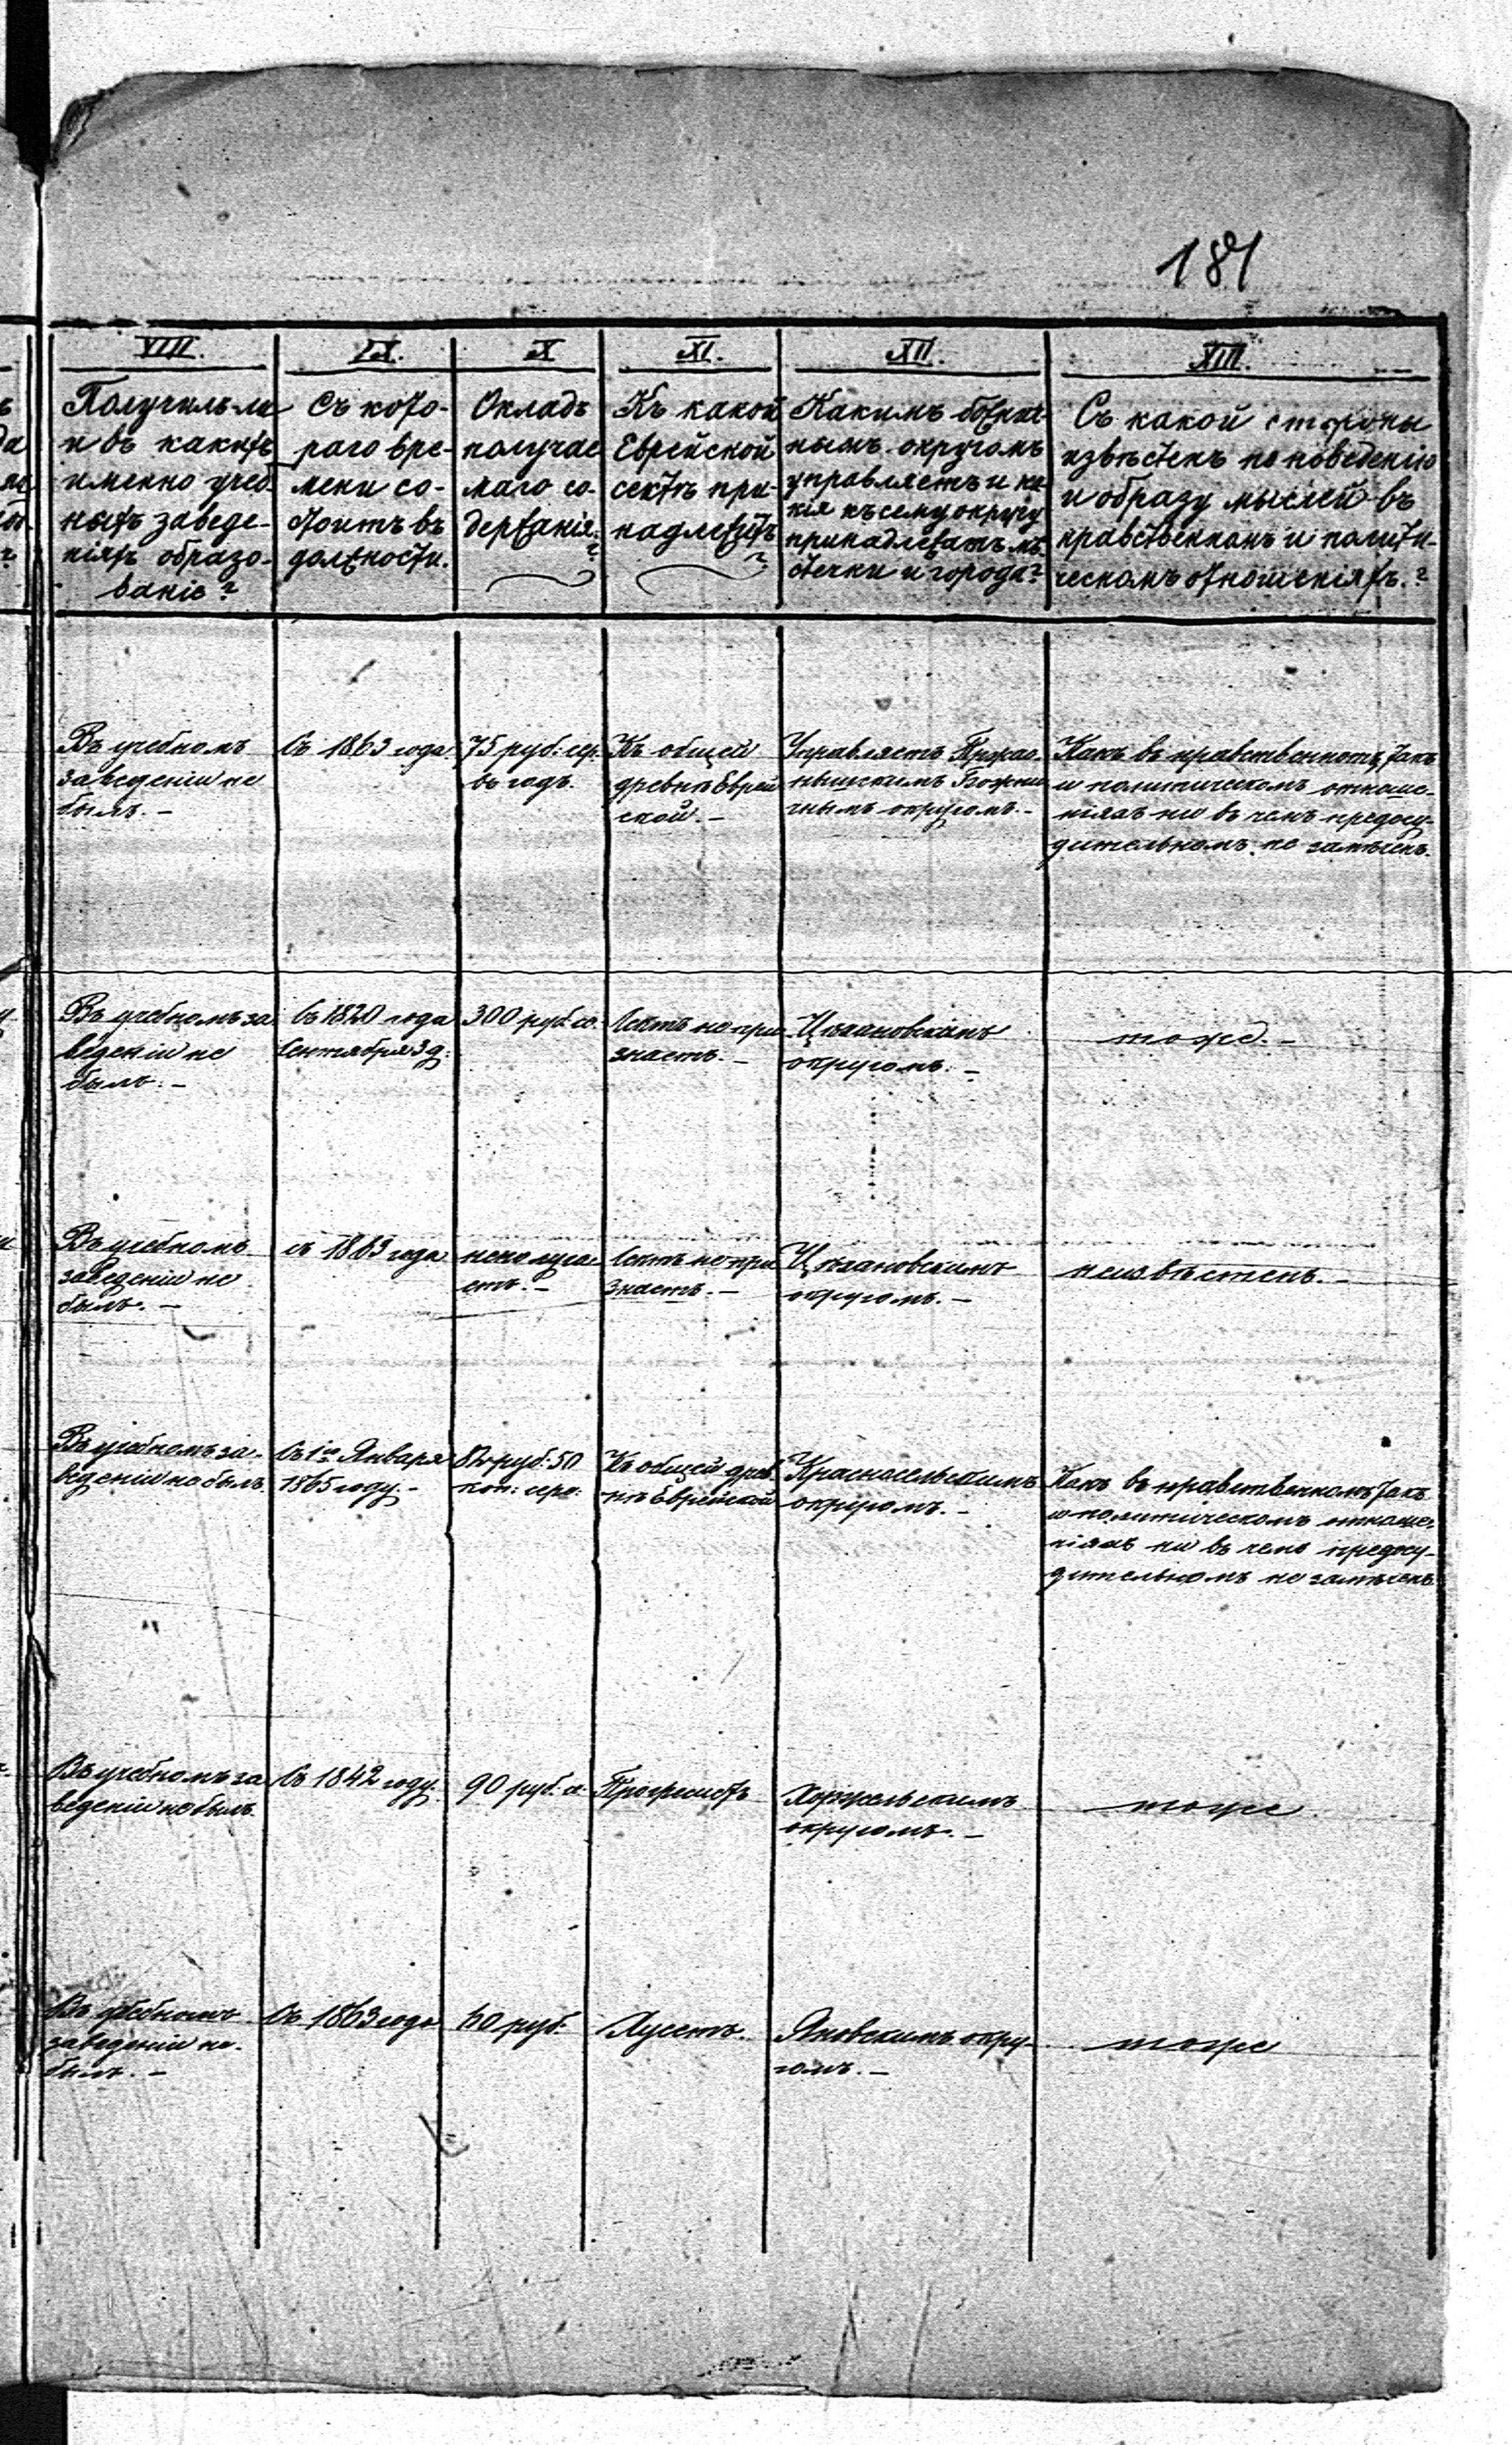 181
VIII.
Получилъ-ли
и въ какихъ
именно учеб-
ныхъ заведе-
нiяхъ образо-
ванiе?
IX.
Съ кото-
раго вре-
мени со-
стоитъ въ
должности.
X
Окладъ
получае
маго со-
держанiя.
?
XI.
Къ какой
Еврейской
сектѣ при-
надлежитъ
?
XII.
Какимъ божни
нымъ округомъ
управляетъ и ка
кiя къ сему округу
принадлежатъ мѣ
стечки и города?
XIII.
Съ какой стороны
извѣстенъ по поведенiю
и образу мыслей въ
нравственномъ и полити-
ческомъ отношенiяхъ.?
Въ учебномъ
заведенiи не
былъ. –
Съ 1863 года.
75 руб. сер.
въ годъ.
Къ общей
древнѣ Еврей
ской. –
Управляетъ Пржас
нышскимъ Божни
чнымъ округомъ. –
Какъ въ нравственномъ, такъ
и политическомъ отноше-
нiяхъ ни въ чемъ предосу-
дительномъ не замѣченъ.
Въ учебномъ за
веденiи не
былъ. –
Съ 1820 года
Сентября 3 д.
300 руб. се.
Сектъ не при
знаетъ. –
Цѣхановскимъ
округомъ. –
тоже. –
Въ учебномъ
заведенiи не
былъ. –
съ 1863 года
неполуча
етъ. –
Сектъ не при
знаетъ. –
Цѣхановскимъ
округомъ. –
неизвѣстенъ. –
Въ учебномъ за-
веденiи не былъ
Съ 1го Января
1865 году. –
87 руб. 50
коп. сере.
Къ общей древ-
нѣ Еврейской
Красносельскимъ
округомъ. –
Какъ въ нравственномъ такъ
и политическомъ отноше-
нiяхъ ни въ чемъ предосу-
дительномъ не замѣченъ
Въ учебномъ за
веденiи не былъ.
Съ 1842 году.
90 руб. се
Прогресистъ
Хоржельскимъ
округомъ. –
тоже.
Въ учебномъ
заведенiи не
былъ. –
Съ 1863 года
60 руб.
Хусетъ.
Яновскимъ окру-
гомъ. –
тоже